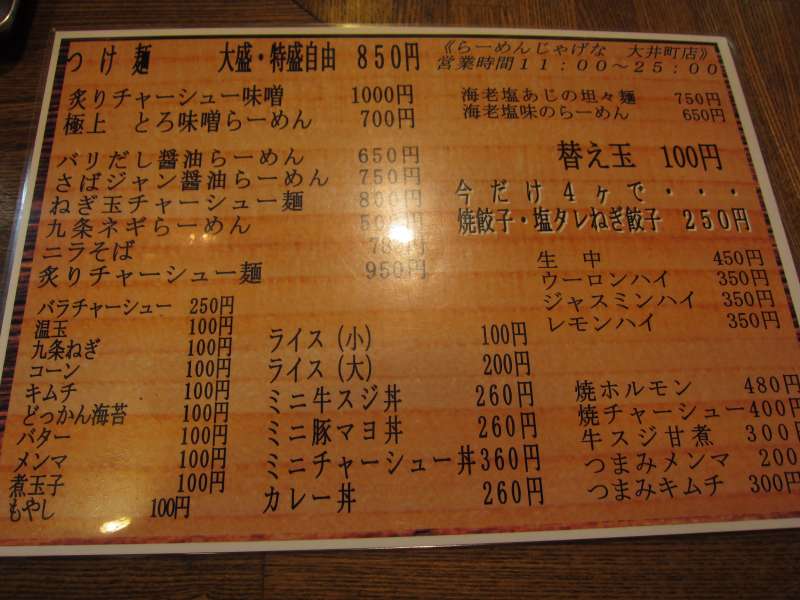 つけ麺 大盛・特盛自由 850円
《らーめんじゃげな 大井町店》
営業時間11:00~25:00
炙りチャーシュー味噌 1000円
極上 とろ味噌らーめん 700円
海老塩あじの坦々麺 750円
海老塩味のらーめん 650円
バリだし醤油らーめん 650円
さばジャン醤油らーめん 750円
ねぎ玉チャーシュー麺 800円
九条ネギらーめん
ニラそば
炙りチャーシュー麺 950円
替え玉 100円
今だけ4ヶで・・・
焼餃子・塩タレねぎ餃子 250円
生 中 450円
ウーロンハイ 350円
ジャスミンハイ 350円
レモンハイ 350円
バラチャーシュー 250円
温玉 100円
九条ねぎ 100円
コーン 100円
キムチ 100円
どっかん海苔 100円
バター 100円
メンマ 100円
煮玉子 100円
もやし 100円
ライス(小) 100円
ライス(大) 200円
ミニ牛スジ丼 260円
ミニ豚マヨ丼 260円
ミニチャーシュー丼 360円
カレー丼 260円
焼ホルモン 480円
焼チャーシュー 400円
牛スジ甘煮 300円
つまみメンマ 200
つまみキムチ 300円